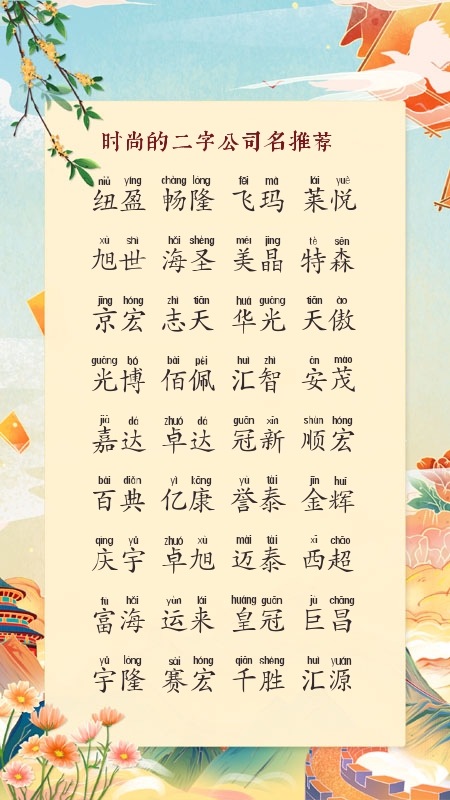 时尚的二字公司名推荐
niǔ yíng chàng lóng fēi mǎ lái yuè
纽盈 畅隆 飞玛 莱悦
xù shì hǎi shèng měi jīng tè sēn
旭世 海圣 美晶 特森
jīng hóng zhì tiān huá guāng tiān ào
京宏 志天 华光 天傲
guāng bó bǎi pèi huì zhì ān mào
光博 佰佩 汇智 安茂
jiā dá zhuó dá guān xīn shùn hóng
嘉达 卓达 冠新 顺宏
bǎi diǎn yì kāng yù tài jīn huī
百典 亿康 誉泰 金辉
qìng yǔ zhuó xù mài tài xī chāo
庆宇 卓旭 迈泰 西超
fù hǎi yùn lái huáng guān jù chāng
富海 运来 皇冠 巨昌
yǔ lóng sài hóng qiān shèng huì yuán
宇隆 赛宏 千胜 汇源